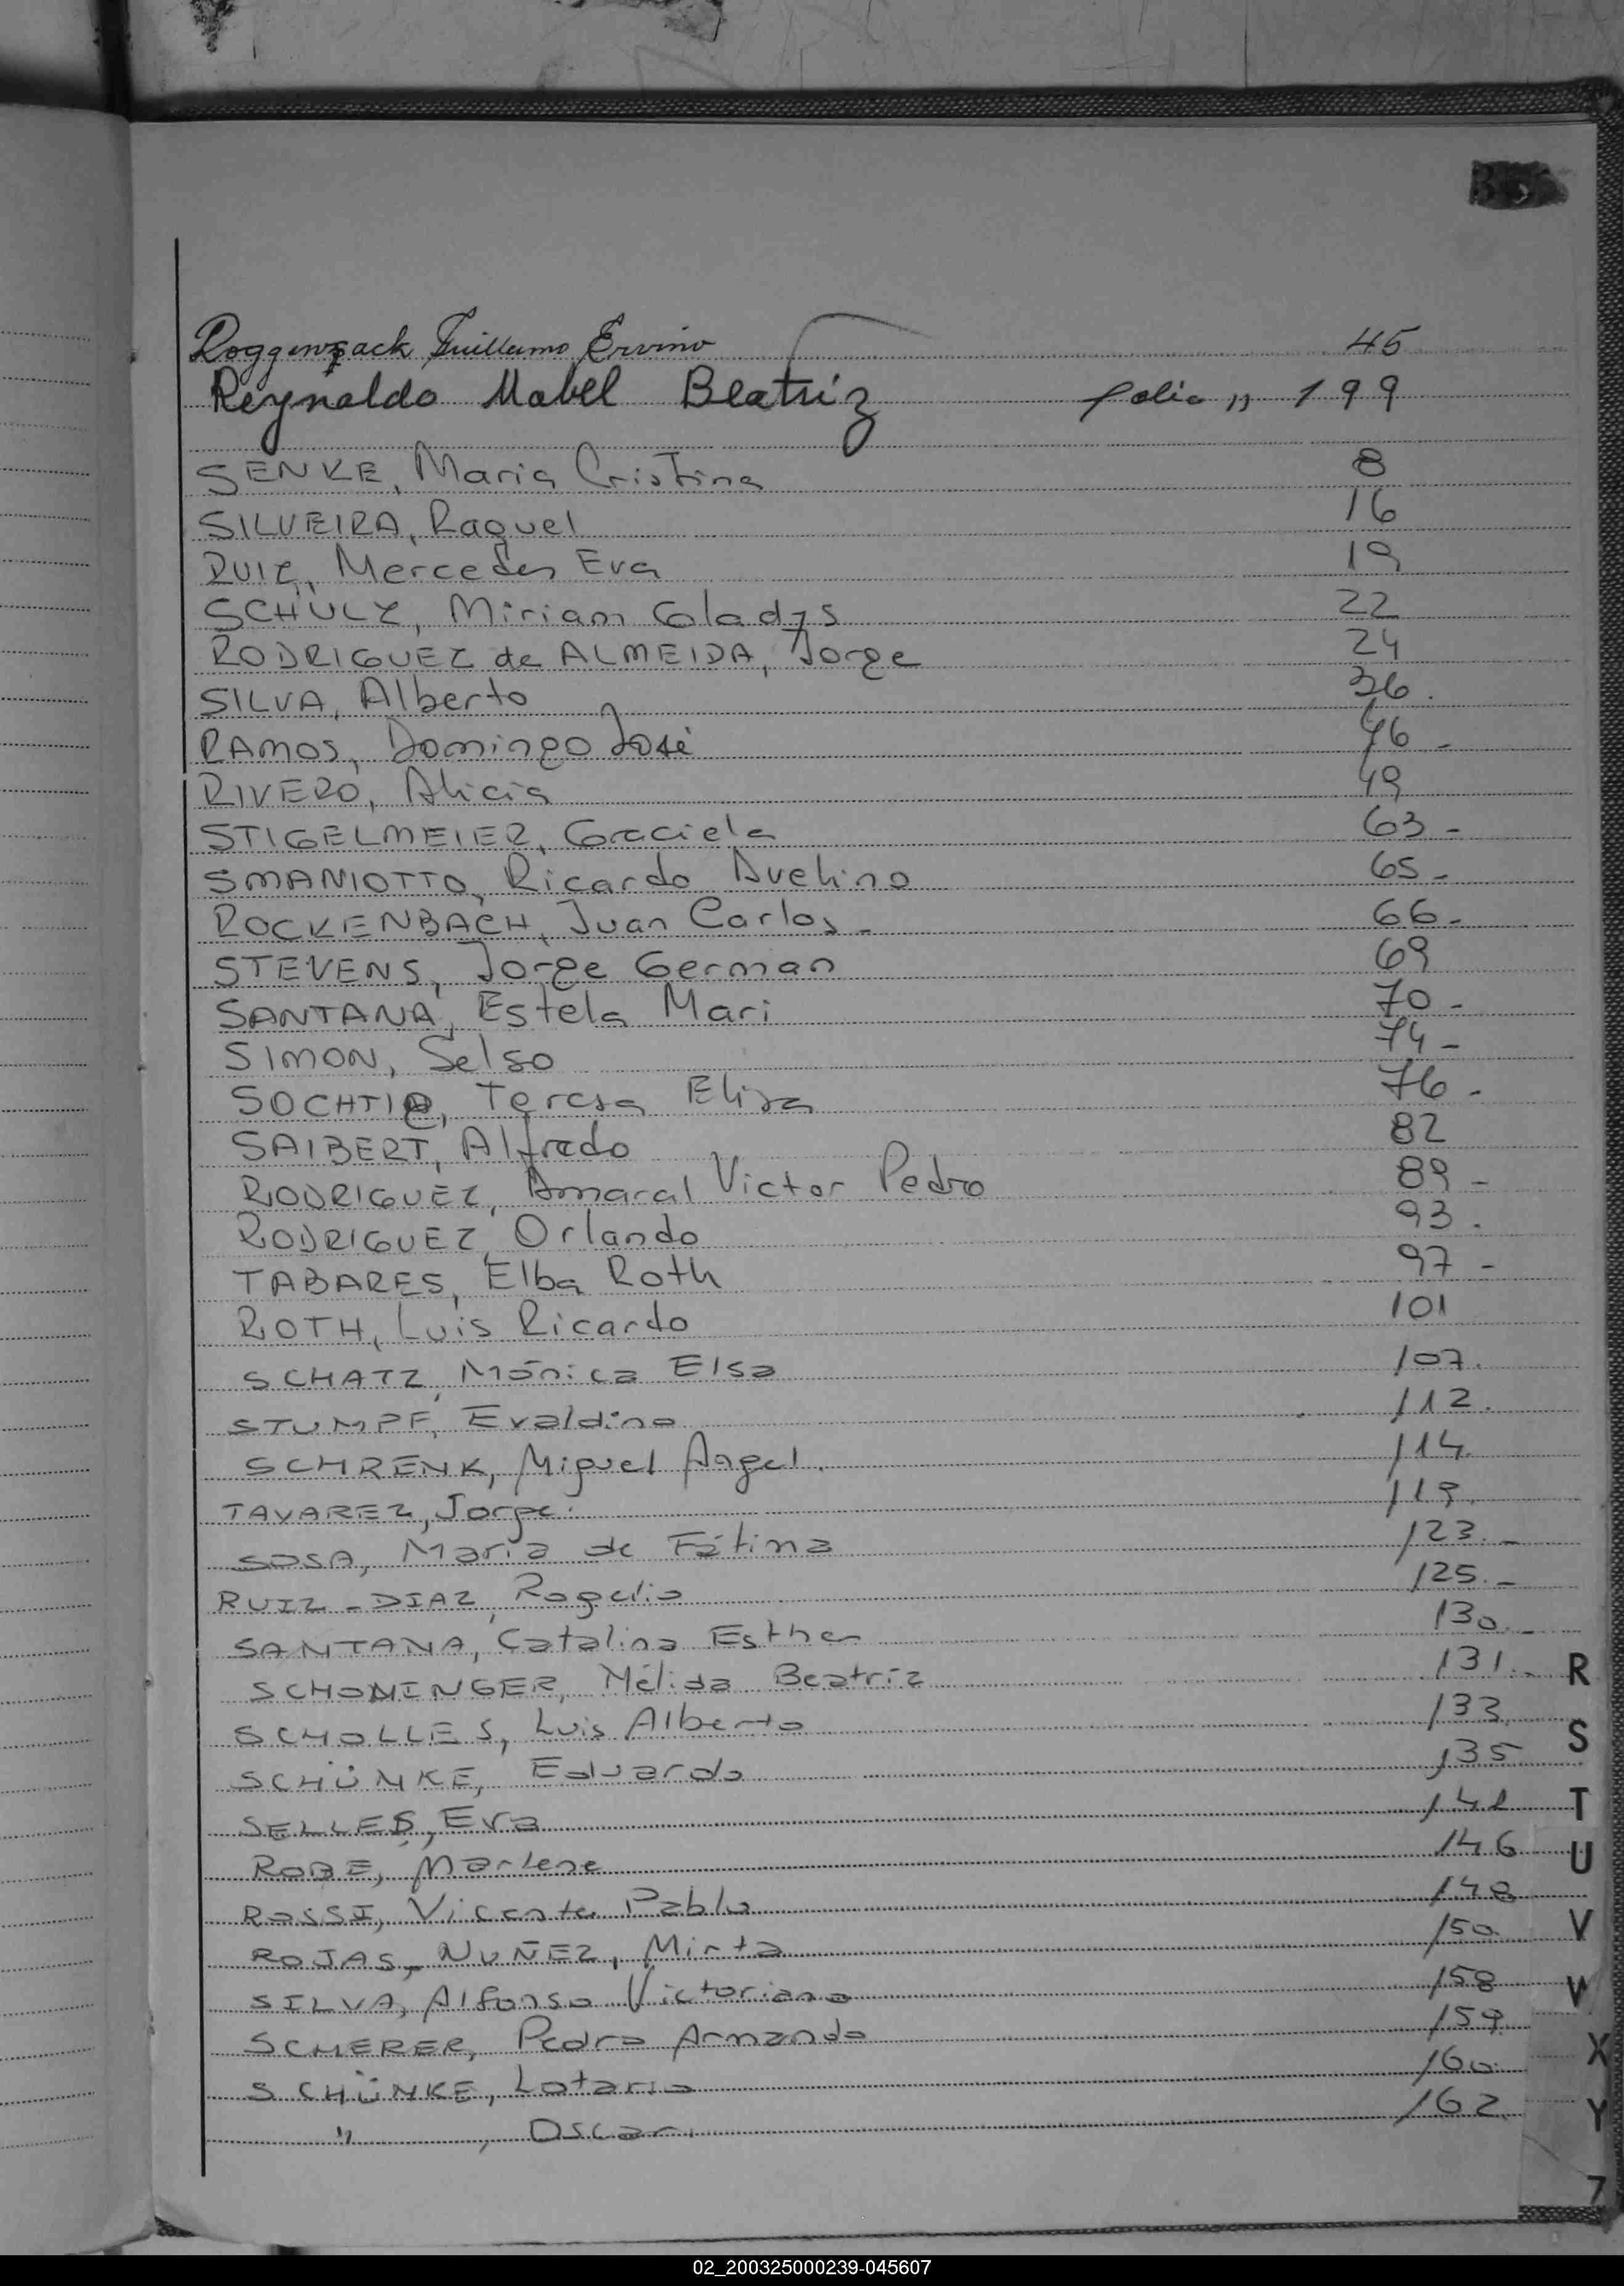 Roggensack Guillermo Ervino 45
Reynaldo Mabel Beatriz folio " 199
SENKE, Maria Cristina 8
SILVEIRA, Raquel 16
RUIZ, Mercedes Eva 19
SCHULZ, Miriam Gladys 22
RODRIGUEZ de ALMEIDA, Jorge 24
SILVA, Alberto 36.
RAMOS, Domingo José 46 -
RIVERO, Alicia 49
STIGELMEIER, Graciela 63 -
SMANIOTTO, Ricardo Avelino 65 -
ROCKENBACH, Juan Carlos - 66 -
STEVENS, Jorge German 69
SANTANA, Estela Mari 70 -
SIMON, Selso 74 -
Teresa Elisa 76 -
SAIBERT, Alfredo 82
RODRIGUEZ, Amaral Victor Pedro 89 -
RODRIGUEZ, Orlando 93.
TABARES, Elba Roth 97 -
ROTH, Luis Ricardo 101
SCHATZ, Mónica Elsa 107.
STUMPF, Evaldino 112.
SCHRENK, Miguel Angel. 114.
TAVAREZ, Jorge. 119.
SOSA, María de Fátima 123. -
RUIZ - DIAZ, Rogelio 125. -
SANTANA, Catalina Esther 130. -
SCHONINGER, Mélida Beatríz 131. -
SCHOLLES, Luis Alberto 133.
SCHÜNKE, Eduardo 135
SELLES, Eva 141
ROBE, Marlene 146
ROSSI, Vicente Pablo 148
ROJAS, NUÑEZ, Mirta 150.
SILVA, Alfonso Victoriano 158
SCHERER, Pedro Armando 159.
SCHÜNKE, Lotario 160.
" , Oscar. 162
R
S
T
U
V
W
X
Y
Z
02_200325000239-045607